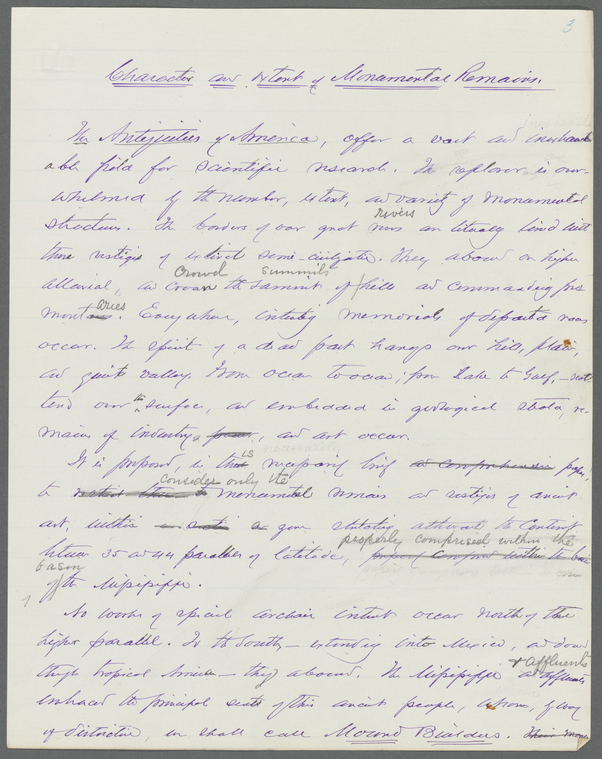 3
Character and Extent of Monumental Remains.
The Antiquities of America, offer a vast and inexhaust
able field for scientific research. The explorer is over-
whelmed by the number, extent, and variety of Monumental
rivers
structures. The borders of our great are literally lined with
these vestiges of extinct semi-civilization. They abound on higher
Crowd summits
alluvial, and the of hills and commanding pro
aries
mont. Everywhere, interesting memorials of departed races
occur. The spirit of a dead past hangs over hill, plain,
and quiet valley. From ocean to ocean; from Lake to Gulf,
over the surface, and embedded in geological strata, re-
mains of industry, and art occur.
is
It is proposed, in this necessarily brief paper,
consider only the
to monumental remains and vestiges of ancient
art, within a zone stretching athwart the Continent
properly comprised within the
between 35 and 44 parallels of latitude,
basin
of the Mississippi.
No works of special character occur North of the
higher parallel. To the South — extending into Mexico, and down
& affluents
through tropical America — they abound. The Mississippi
embraced the principal seats of this ancient people, whom, by way
of distinction, we shall call Mound Builders.